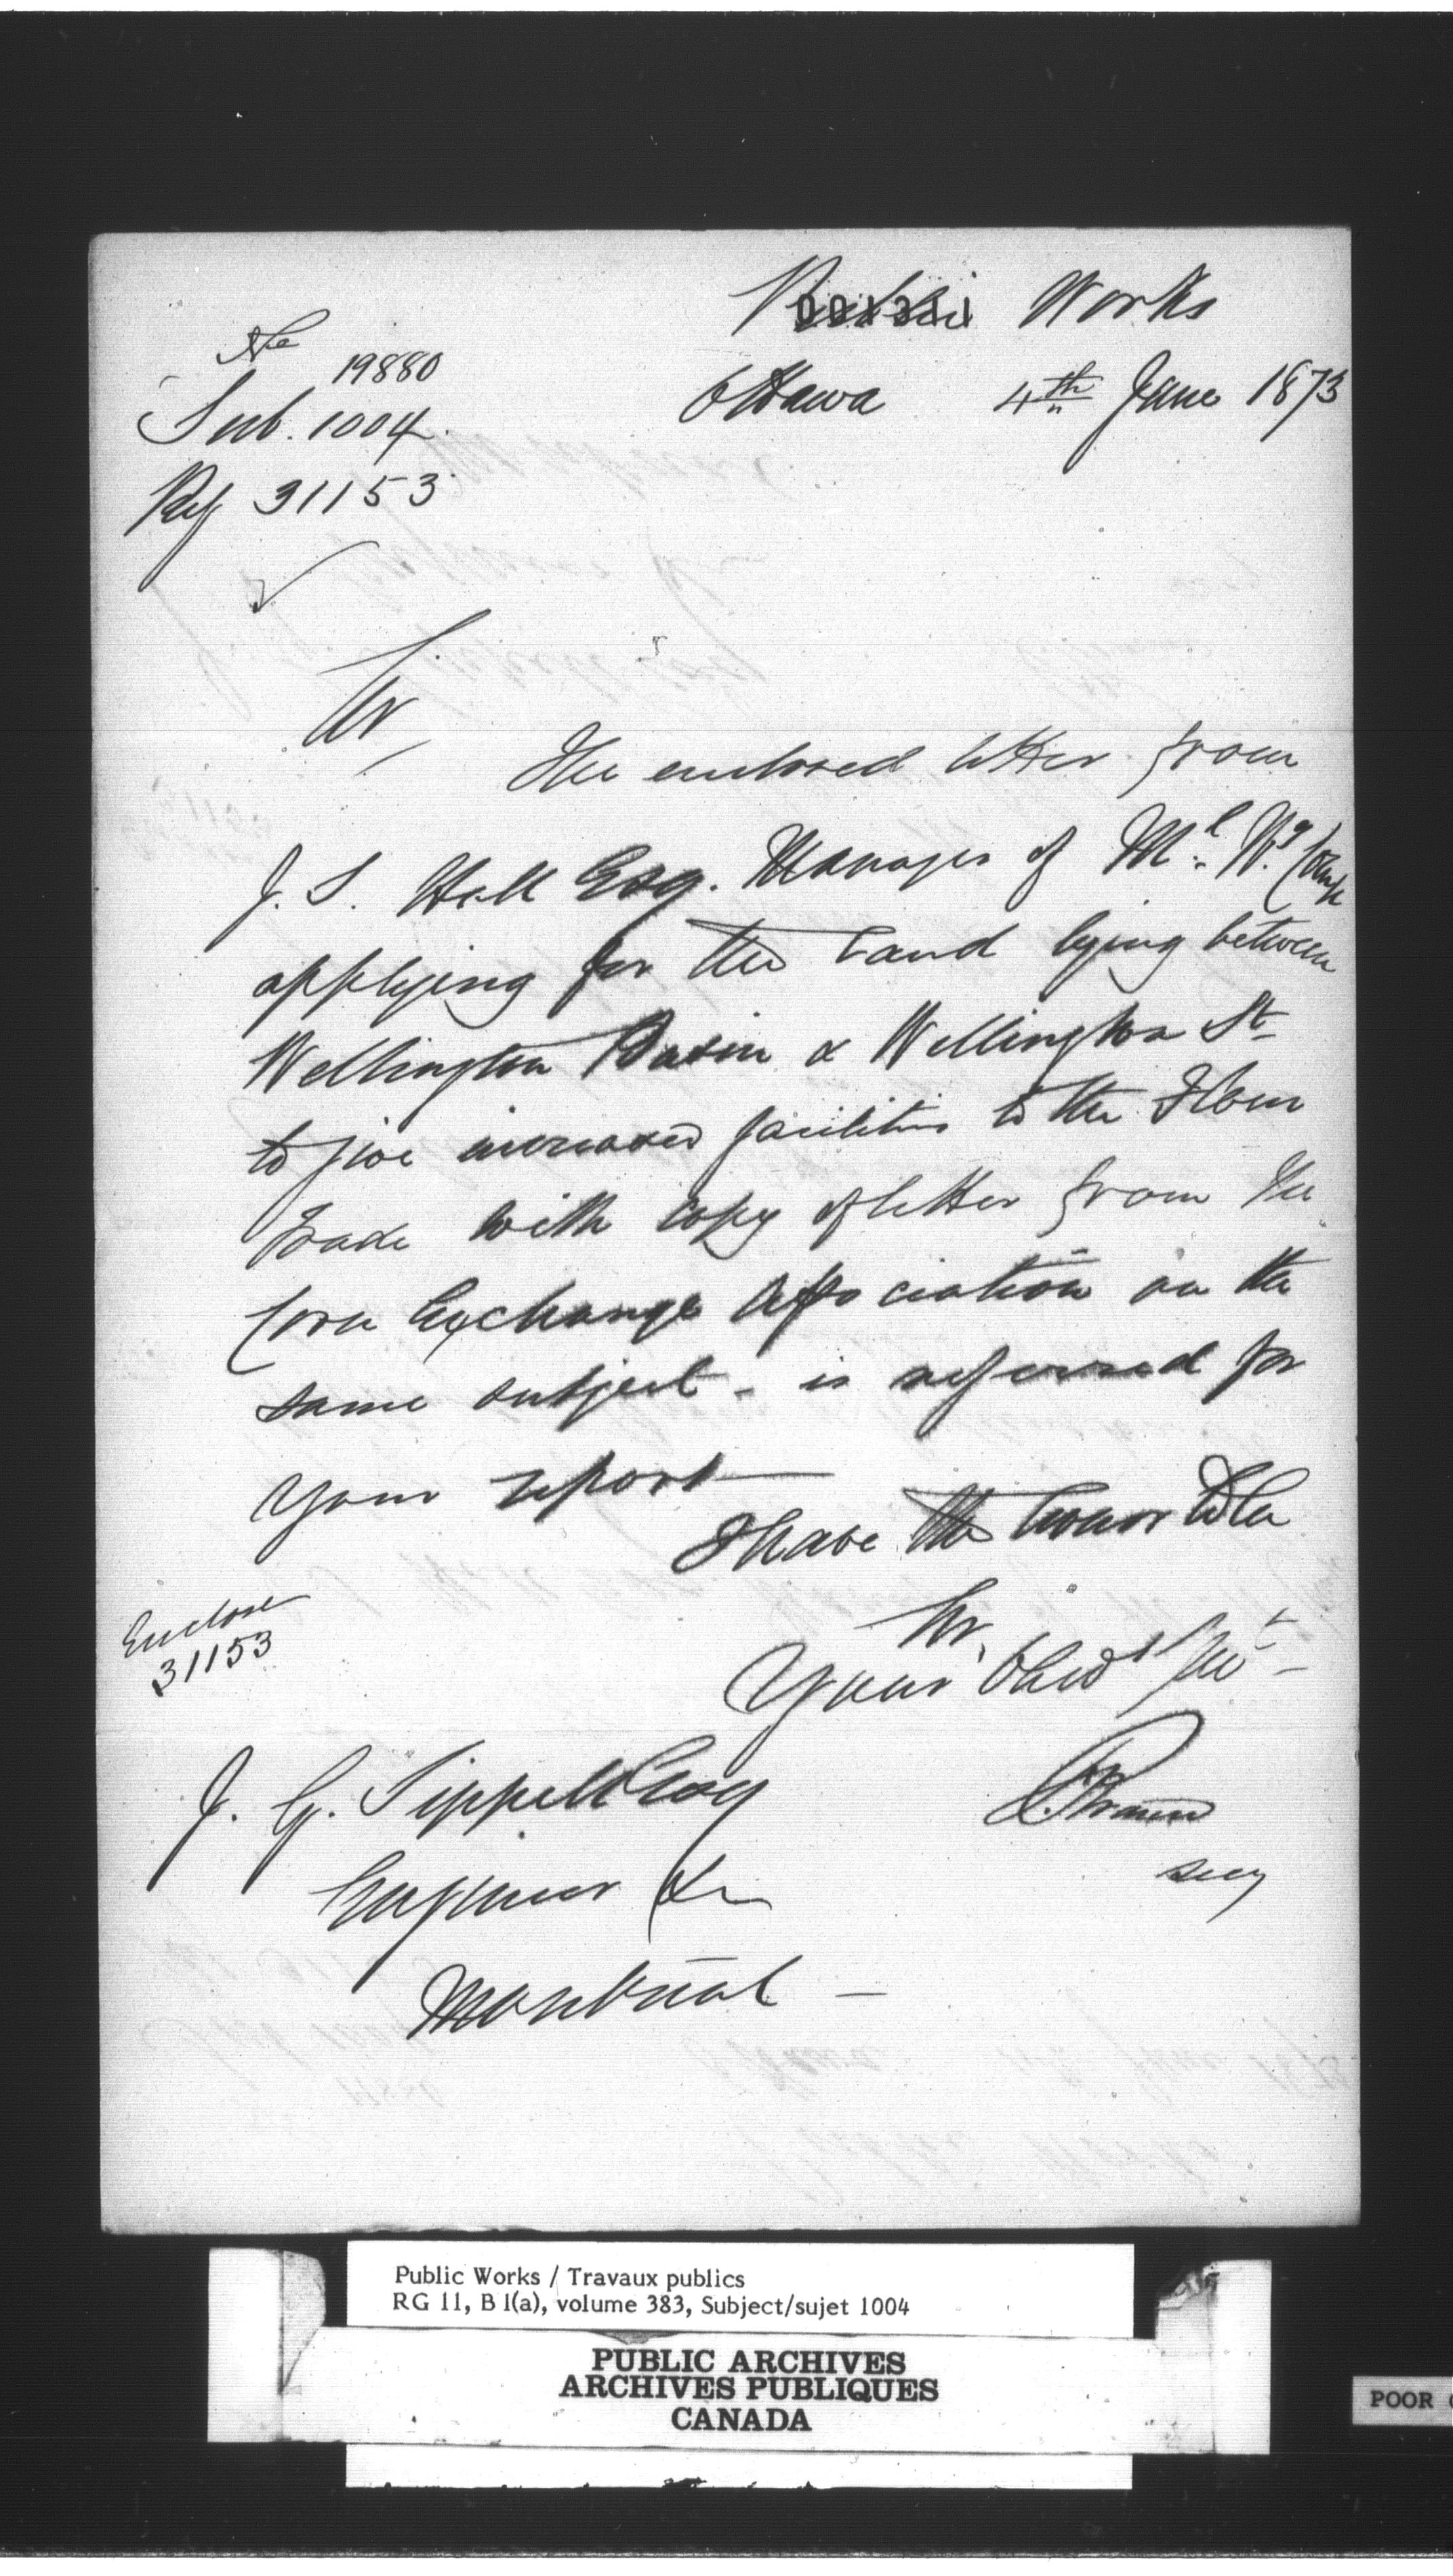 Public Works
Ottawa 4th June 1873
No 19880
Sub. 1004.
Ref 31153
Sir,
The enclosed letter from
J. S. Hall Esq. Manager of Ml. Wg Comp
applying for the Land lying between
Wellington Basin & Wellington St
to give increased facilities to the Flour
Trade with copy of letter from the
Corn Exchange Association on the
same subject - is referred for
your report
I have the honor to be
Sir,
Your Obedt Svt
Enclose
31153
F. Braun
secy
J. G. Sippell Esq
Engineer &c
Montreal -
Public Works / Travaux publics
RG 11, B 1(a), volume 383, Subject/sujet 1004
PUBLIC ARCHIVES
ARCHIVES PUBLIQUES
CANADA
POOR